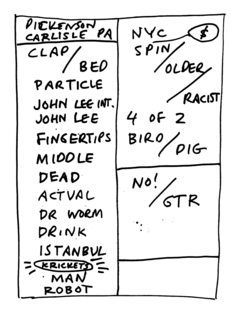 DICKENSON
CARLISLE PA
CLAP / BED
PARTICLE
JOHN LEE INT.
JOHN LEE
FINGERTIPS
MIDDLE
DEAD
ACTUAL
DR WORM
DRINK
ISTANBUL
KRICKETS
MAN
ROBOT
NYC $
SPIN / OLDER / RACIST
4 OF 2
BIRD / DIG
NO! / GTR